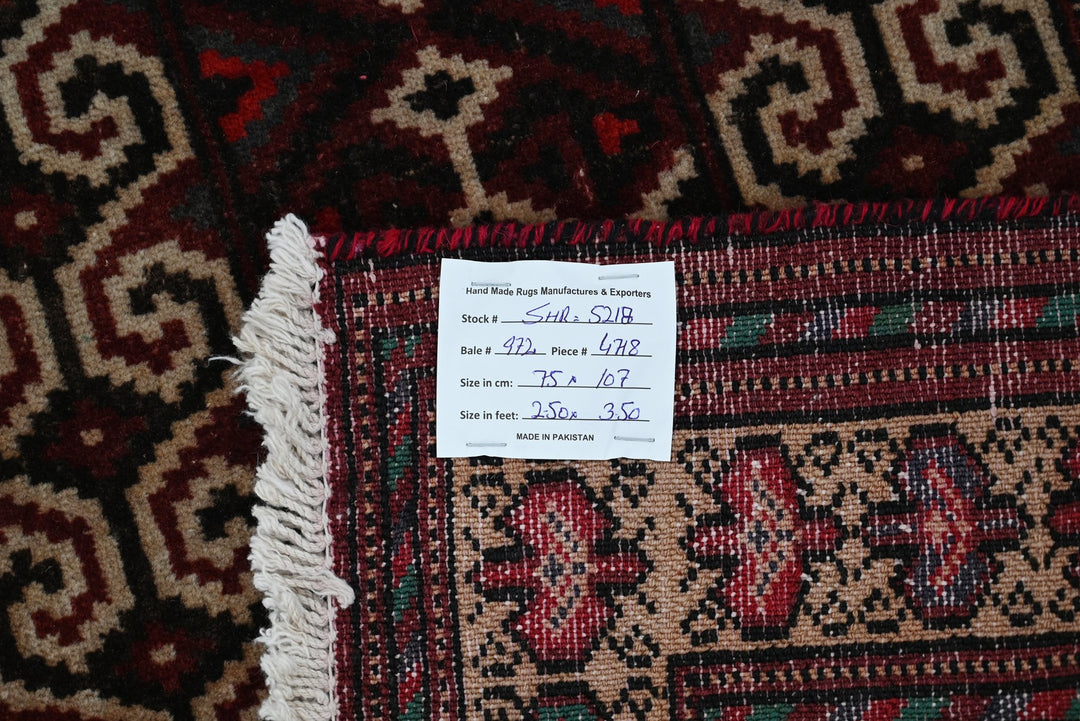 Hand Made Rugs Manufactures & Exporters
Stock # SHR= 5218
Bale # 472 Piece # 4718
Size in cm: 75 x 107
Size in feet: 2.50x 3.50
MADE IN PAKISTAN